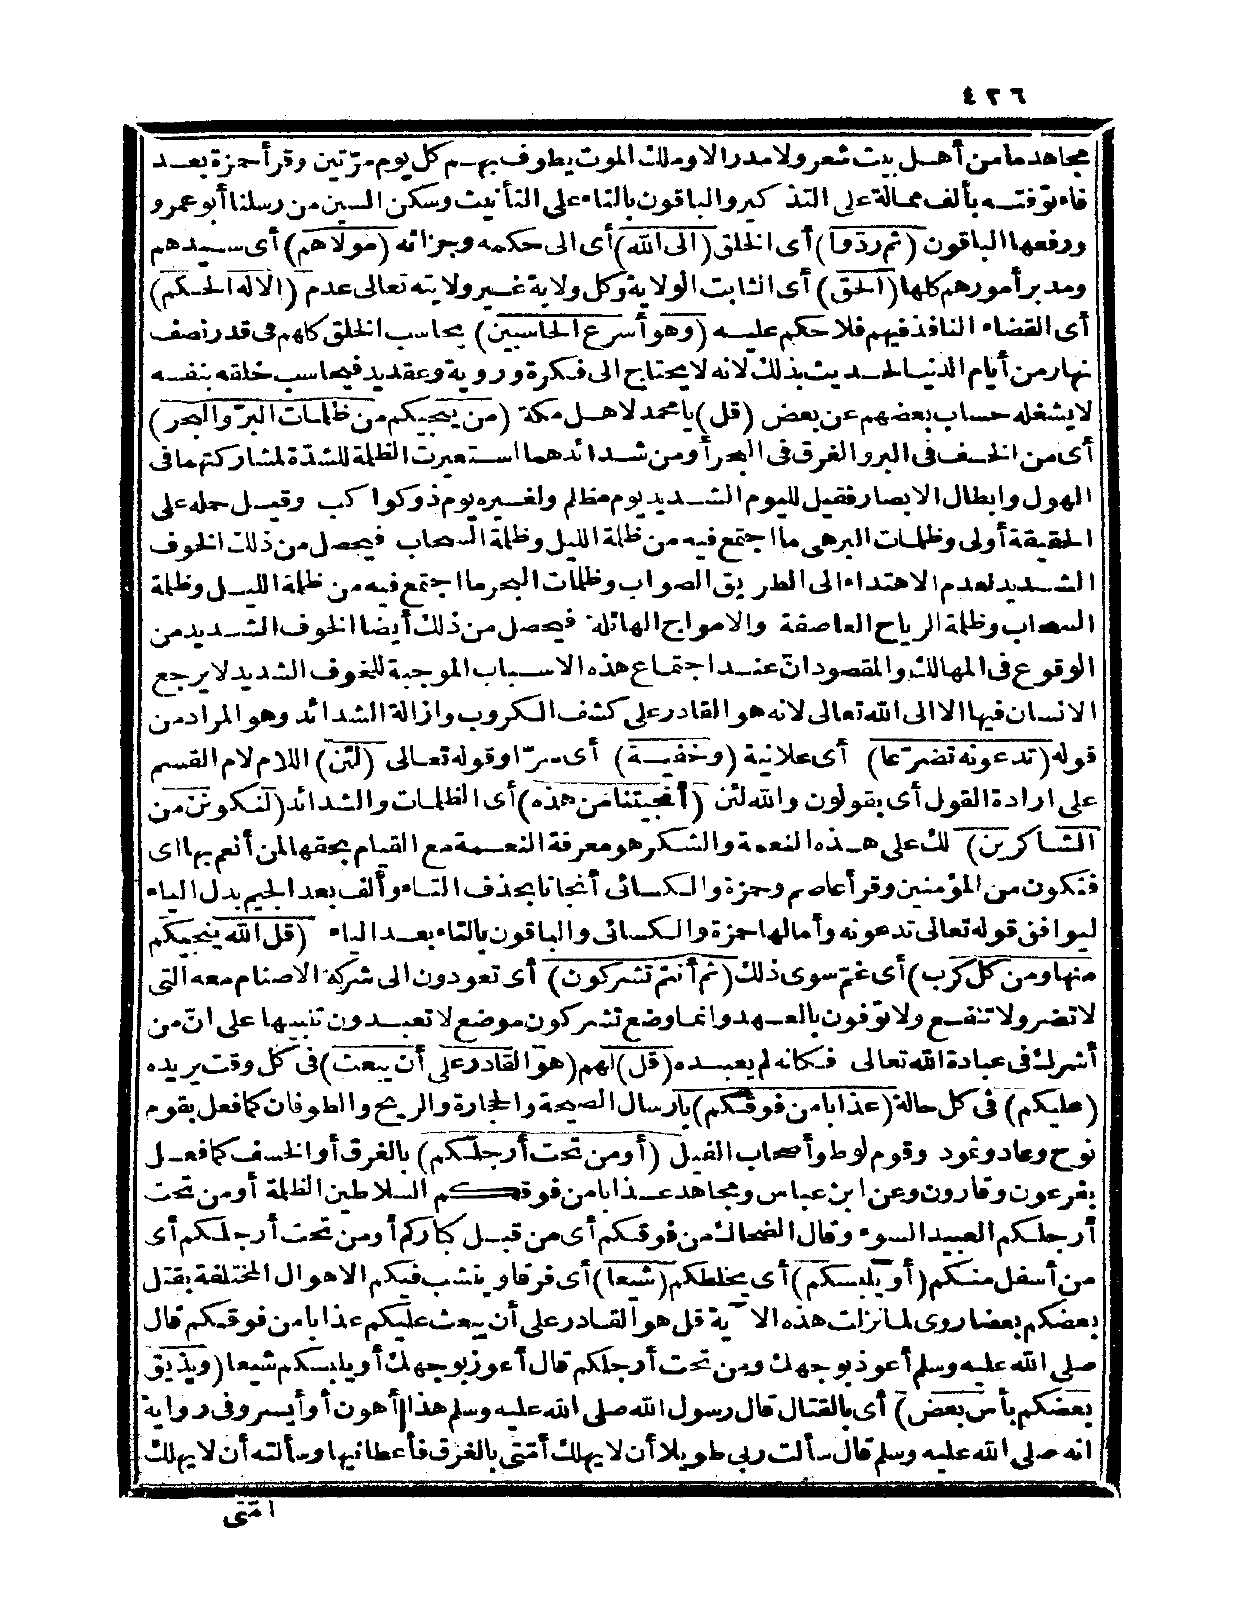 ٤٢٦
مجاهد ما من أهل بيت شعر ولا مدر الا وملك الموت يطوف بهم كل يوم مرّتين وقرأ حمزة بعد
فاء توّفته بألف ممالة على التذكير والباقون بالتاء على التأنيث وسكن السين من رسلنا أبو عمرو
ورفعها الباقون (ثم ردّوا) أى الخلق (الى الله) أى الى حكمه وجزائه (مولاهم) أى سيدهم
ومدبر أمورهم كلها (الحق) أى الثابت الولاية وكل ولاية غير ولايته تعالى عدم (الاله الحكم)
أى القضاء النافذ فيهم فلا حكم عليه (وهو أسرع الحاسبين) يحاسب الخلق كلهم فى قدر نصف
نهار من أيام الدنيا لحديث بذلك لانه لا يحتاج الى فكرة وروية وعقد يد فيحاسب خلقه بنفسه
لا يشغله حساب بعضهم عن بعض (قل) يا محمد لاهل مكة (من ينجيكم من ظلمات البرّ والبحر)
أى من الخسف فى البر والغرق فى البحر أو من شدائدهما استعيرت الظلمة للشدّة لمشاركتهما فى
الهول وابطال الابصار فقيل لليوم الشديد يوم مظلم ولغيره يوم ذو كواكب وقيل حمله على
الحقيقة أولى وظلمات البر هى ما اجتمع فيه من ظلمة الليل وظلمة السحاب فيحصل من ذلك الخوف
الشديد لعدم الاهتداء الى الطريق الصواب وظلمات البحر ما اجتمع فيه من ظلمة الليل وظلمة
السحاب وظلمة الرياح العاصفة والامواج الهائلة فيحصل من ذلك أيضا الخوف الشديد من
الوقوع فى المهالك والمقصود انّ عند اجتماع هذه الاسباب الموجبة للخوف الشديد لا يرجع
الانسان فيها الا الى الله تعالى لانه هو القادر على كشف الكروب وازالة الشدائد وهو المراد من
قوله (تدعونه تضرّعا) أى علانية (وخفية) أى سرّا وقوله تعالى (لئن) اللام لام القسم
على ارادة القول أى يقولون والله لئن (أنجيتنا من هذه) أى الظلمات والشدائد (لنكوننّ من
الشاكرين) لك على هذه النعمة والشكر هو معرفة النعمة مع القيام بحقها لمن أنعم بها اى
فنكون من المؤمنين وقرأ عاصم وحمزة والكسائى أنجانا بحذف التاء وألف بعد الجيم بدل الياء
ليوافق قوله تعالى تدعونه وأمالها حمزة والكسائى والباقون بالتاء بعد الياء (قل الله ينجيكم
منها ومن كل كرب) أى غم سوى ذلك (ثم أنتم تشركون) أى تعودون الى شركة الاصنام معه التى
لا تضر ولا تنفع ولا توّفون بالعهد وانما وضع تشركون موضع لا تعبدون تنبيها على انّ من
أشرك فى عبادة الله تعالى فكانه لم يعبده (قل) لهم (هو القادر على أن يبعث) فى كل وقت يريده
(عليكم) فى كل حالة (عذابا من فوقكم) بارسال الصيحة والحجارة والريح والطوفان كما فعل بقوم
نوح وعاد وثمود وقوم لوط وأصحاب الفيل (أو من تحت أرجلكم) بالغرق أو الخسف كما فعل
بفرعون وقارون وعن ابن عباس ومجاهد عذابا من فوقكم السلاطين الظلمة أو من تحت
أرجلكم العبيد السوء وقال الضحاك من فوقكم أى من قبل كباركم أو من تحت أرجلكم أى
من أسفل منكم (أو يلبسكم) أى يخلطكم (شيعا) أى فرقا وينشب فيكم الاهوال المختلفة بقتل
بعضكم بعضا روى لما نزلت هذه الآية قل هو القادر على أن يبعث عليكم عذابا من فوقكم قال
صلى الله عليه وسلم أعوذ بوجهك ومن تحت أرجلكم قال أعوز بوجهك أو يلبسكم شيعا (ويذيق
بعضكم بأس بعض) أى بالقتال قال رسول الله صلى الله عليه وسلم هذا أهون أو أيسر وفى رواية
انه صلى الله عليه وسلم قال سألت ربى طويلا أن لا يهلك أمّتى بالغرق فأعطانيها وسألته أن لا يهلك
امّتى